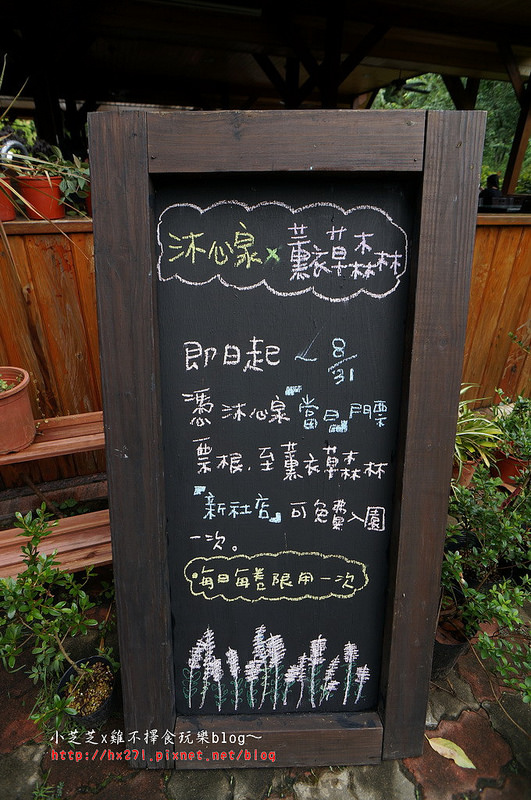 沐心泉x薰衣草森林
即日起~8/31
憑沐心泉『當日』門票
票根,至薰衣草森林
『新社店』可免費入園
一次。
•每日每券限用一次
小芝芝x雞不擇食玩樂blog~
http://hx27!.pixnet.net/blog